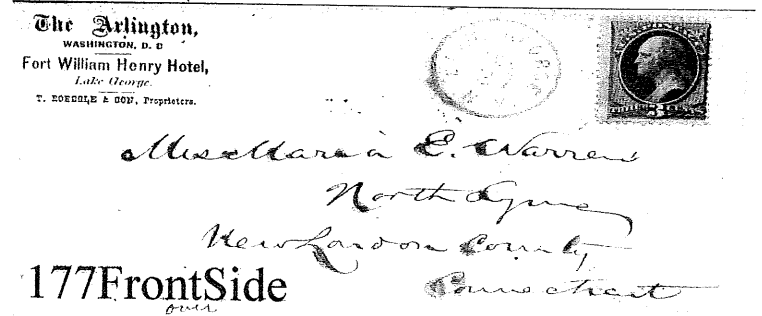 The Arlington,
WASHINGTON, D. C
Fort William Henry Hotel,
Lake George.
T. ROESSLE & SON, Proprietors.
3
Miss Maria E. Warren
North Lyme
New London County
Connecticut
177FrontSide
over